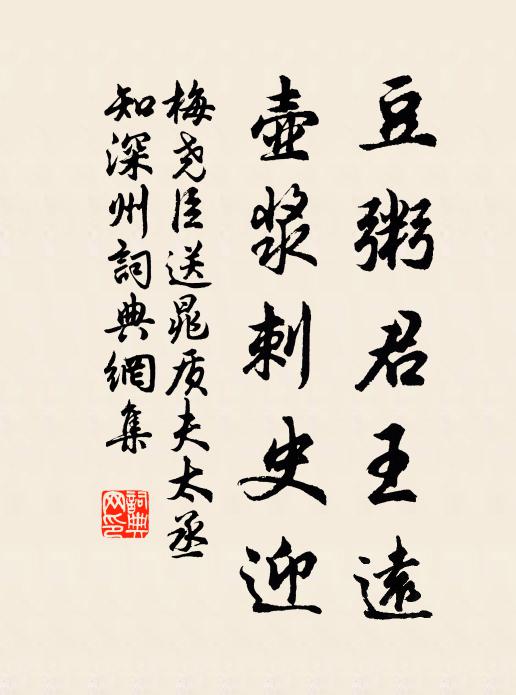 豆粥君王遠
壺漿刺史迎
梅尧臣送晁质夫太丞
知深州詞典網集
詞典网印